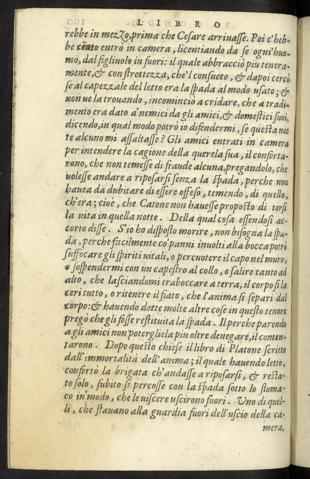 LIBRO
rebbe in mezzo, prima che Cesare arriuasse. Poi c'heb-
be cenato entrò in camera, licentiando da se ogni huo-
mo, dal figliuolo in fuori: il quale abbracciò piu tenera-
mente, & con strettezza, che'l consueto, & dapoi cercò
se al capezzale del letto era la spada al modo usato; &
non ue la trouando, incominciò a cridare, che a tradi-
mento era dato a' nemici da gli amici, & domestici suoi,
dicendo, in qual modo potrò io difendermi, se questa not
te alcuno mi assaltasse? Gli amici entrati in camera
per intendere la cagione della querela sua, il conforta-
rono, che non temesse di fraude alcuna, pregandolo, che
uolesse andare a riposarsi senza la spada, perche non
hauea da dubitare di essere offeso, temendo, di quello,
ch'era; cioè, che Catone non hauesse proposto di torsi
la uita in quella notte. Della qual cosa essendosi ac-
corto disse. S'io ho disposto morire, non bisogna la spa-
da, perche facilmente co' panni inuolti alla bocca potrò
suffocare gli spiriti uitali, o percuotere il capo nel muro,
o sospendermi con un capestro al collo, o salire tanto ad
alto, che lasciandomi traboccare a terra, il corpo si la
ceri tutto, o ritenere il fiato, che l'anima si separi dal
corpo: & hauendo dette molte altre cose in questo tenore
pregò che gli fosse restituita la spada. Il perche parendo
a gli amici non potergliela piu oltre denegare, il conten-
tarono. Dopo questo chiese il libro di Platone scritto
dall'immortalità dell'anima; il quale hauendo letto,
confortò la brigata ch'andasse a riposarsi, & resta-
to solo, subito si percosse con la spada sotto lo stoma-
co in modo, che le uiscere uscirono fuori. Uno di quel-
li, che stauano alla guardia fuori dell'uscio della ca-
mera,